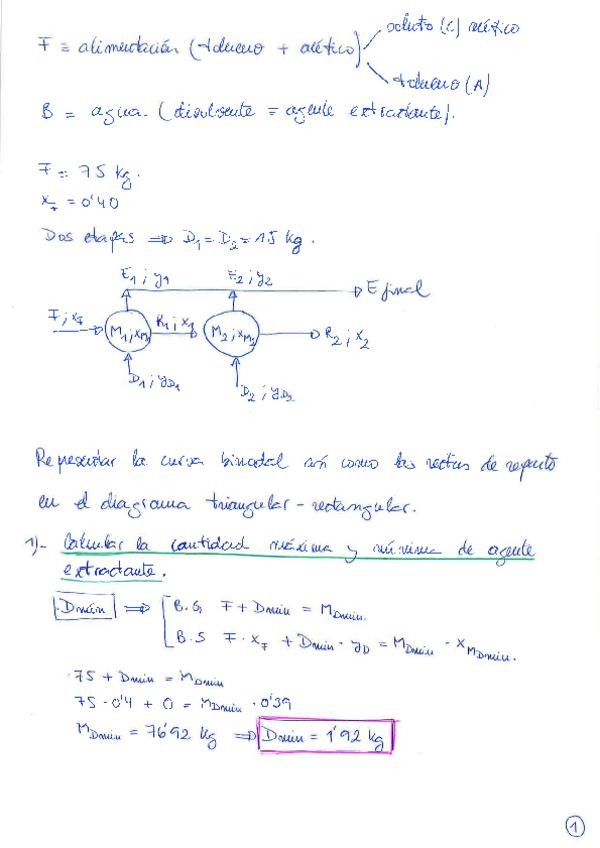 soluto (C) acético
F ≡ alimentación (tolueno + acético)
tolueno (A)
B = agua. (disolvente = agente extractante).
F = 75 kg.
x_F = 0'40
Dos etapas ⇒ D₁ = D₂ = 15 kg.
E₁ ; y₁ E₂ ; y₂
E final
F ; x_F M₁ ; x_M₁ R₁ ; x₁ M₂ ; x_M₂ R₂ ; x₂
D₁ ; y_D₁ D₂ ; y_D₂
Representar la curva binodal así como las rectas de reparto
en el diagrama triangular - rectangular.
1)- Calcular la cantidad máxima y mínima de agente
extractante.
Dmín ⇒ B.G F + Dmin = M_Dmin.
B.S F · x_F + Dmin · y_D = M_Dmin · x_M_Dmin.
· 75 + Dmin = M_Dmin
75 · 0'4 + 0 = M_Dmin · 0'39
M_Dmin = 76'92 kg ⇒ Dmin = 1'92 kg
1